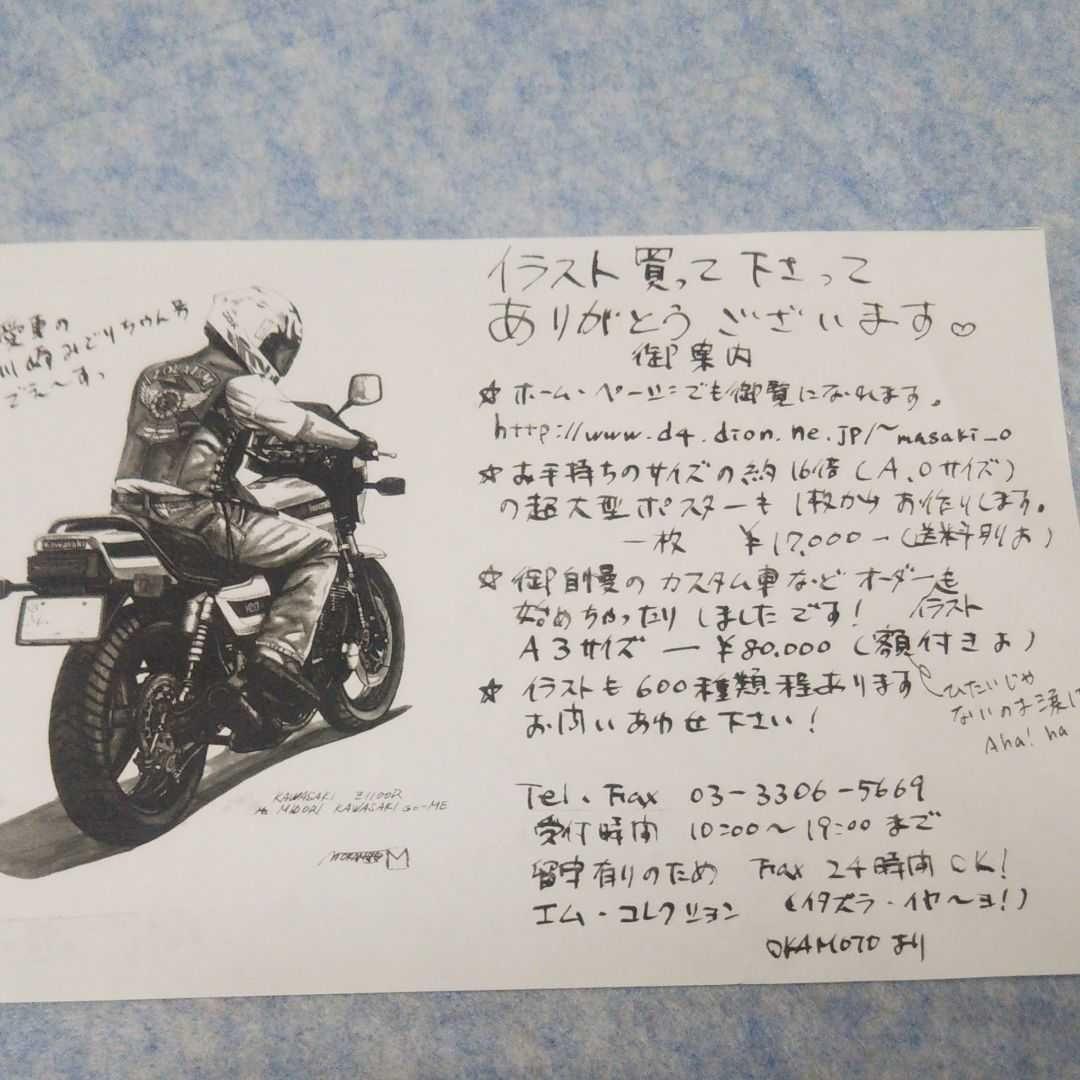 イラスト買って下さって
ありがとうございます♡
御案内
☆ホーム・ページでも御覧になれます。
http://www.d4.dion.ne.jp/~masaki_o
☆お手持ちのサイズの約16倍(A.0サイズ)
の超大型ポスターも1枚からお作りします。
一枚 ¥17,000-(送料別よ)
☆御自慢のカスタム車などオーダーイラストも
始めちゃったりしましたです!
A3サイズ—¥80.000(額付きよ)
ひたいじゃ
ないの
Aha! ha
☆イラストも600種類程あります
お問いあわせ下さい!
Tel. Fax 03-3306-5669
受付時間 10:00〜19:00まで
留守有りのため Fax 24時間OK!
エム・コレクション (イタズラ・イヤ〜ヨ!)
OKAMOTOより
愛車の
川崎みどりちゃん号
でえ〜すっ
Kawasaki
KAWASAKI Z1100R
MIDORI KAWASAKI GO-ME